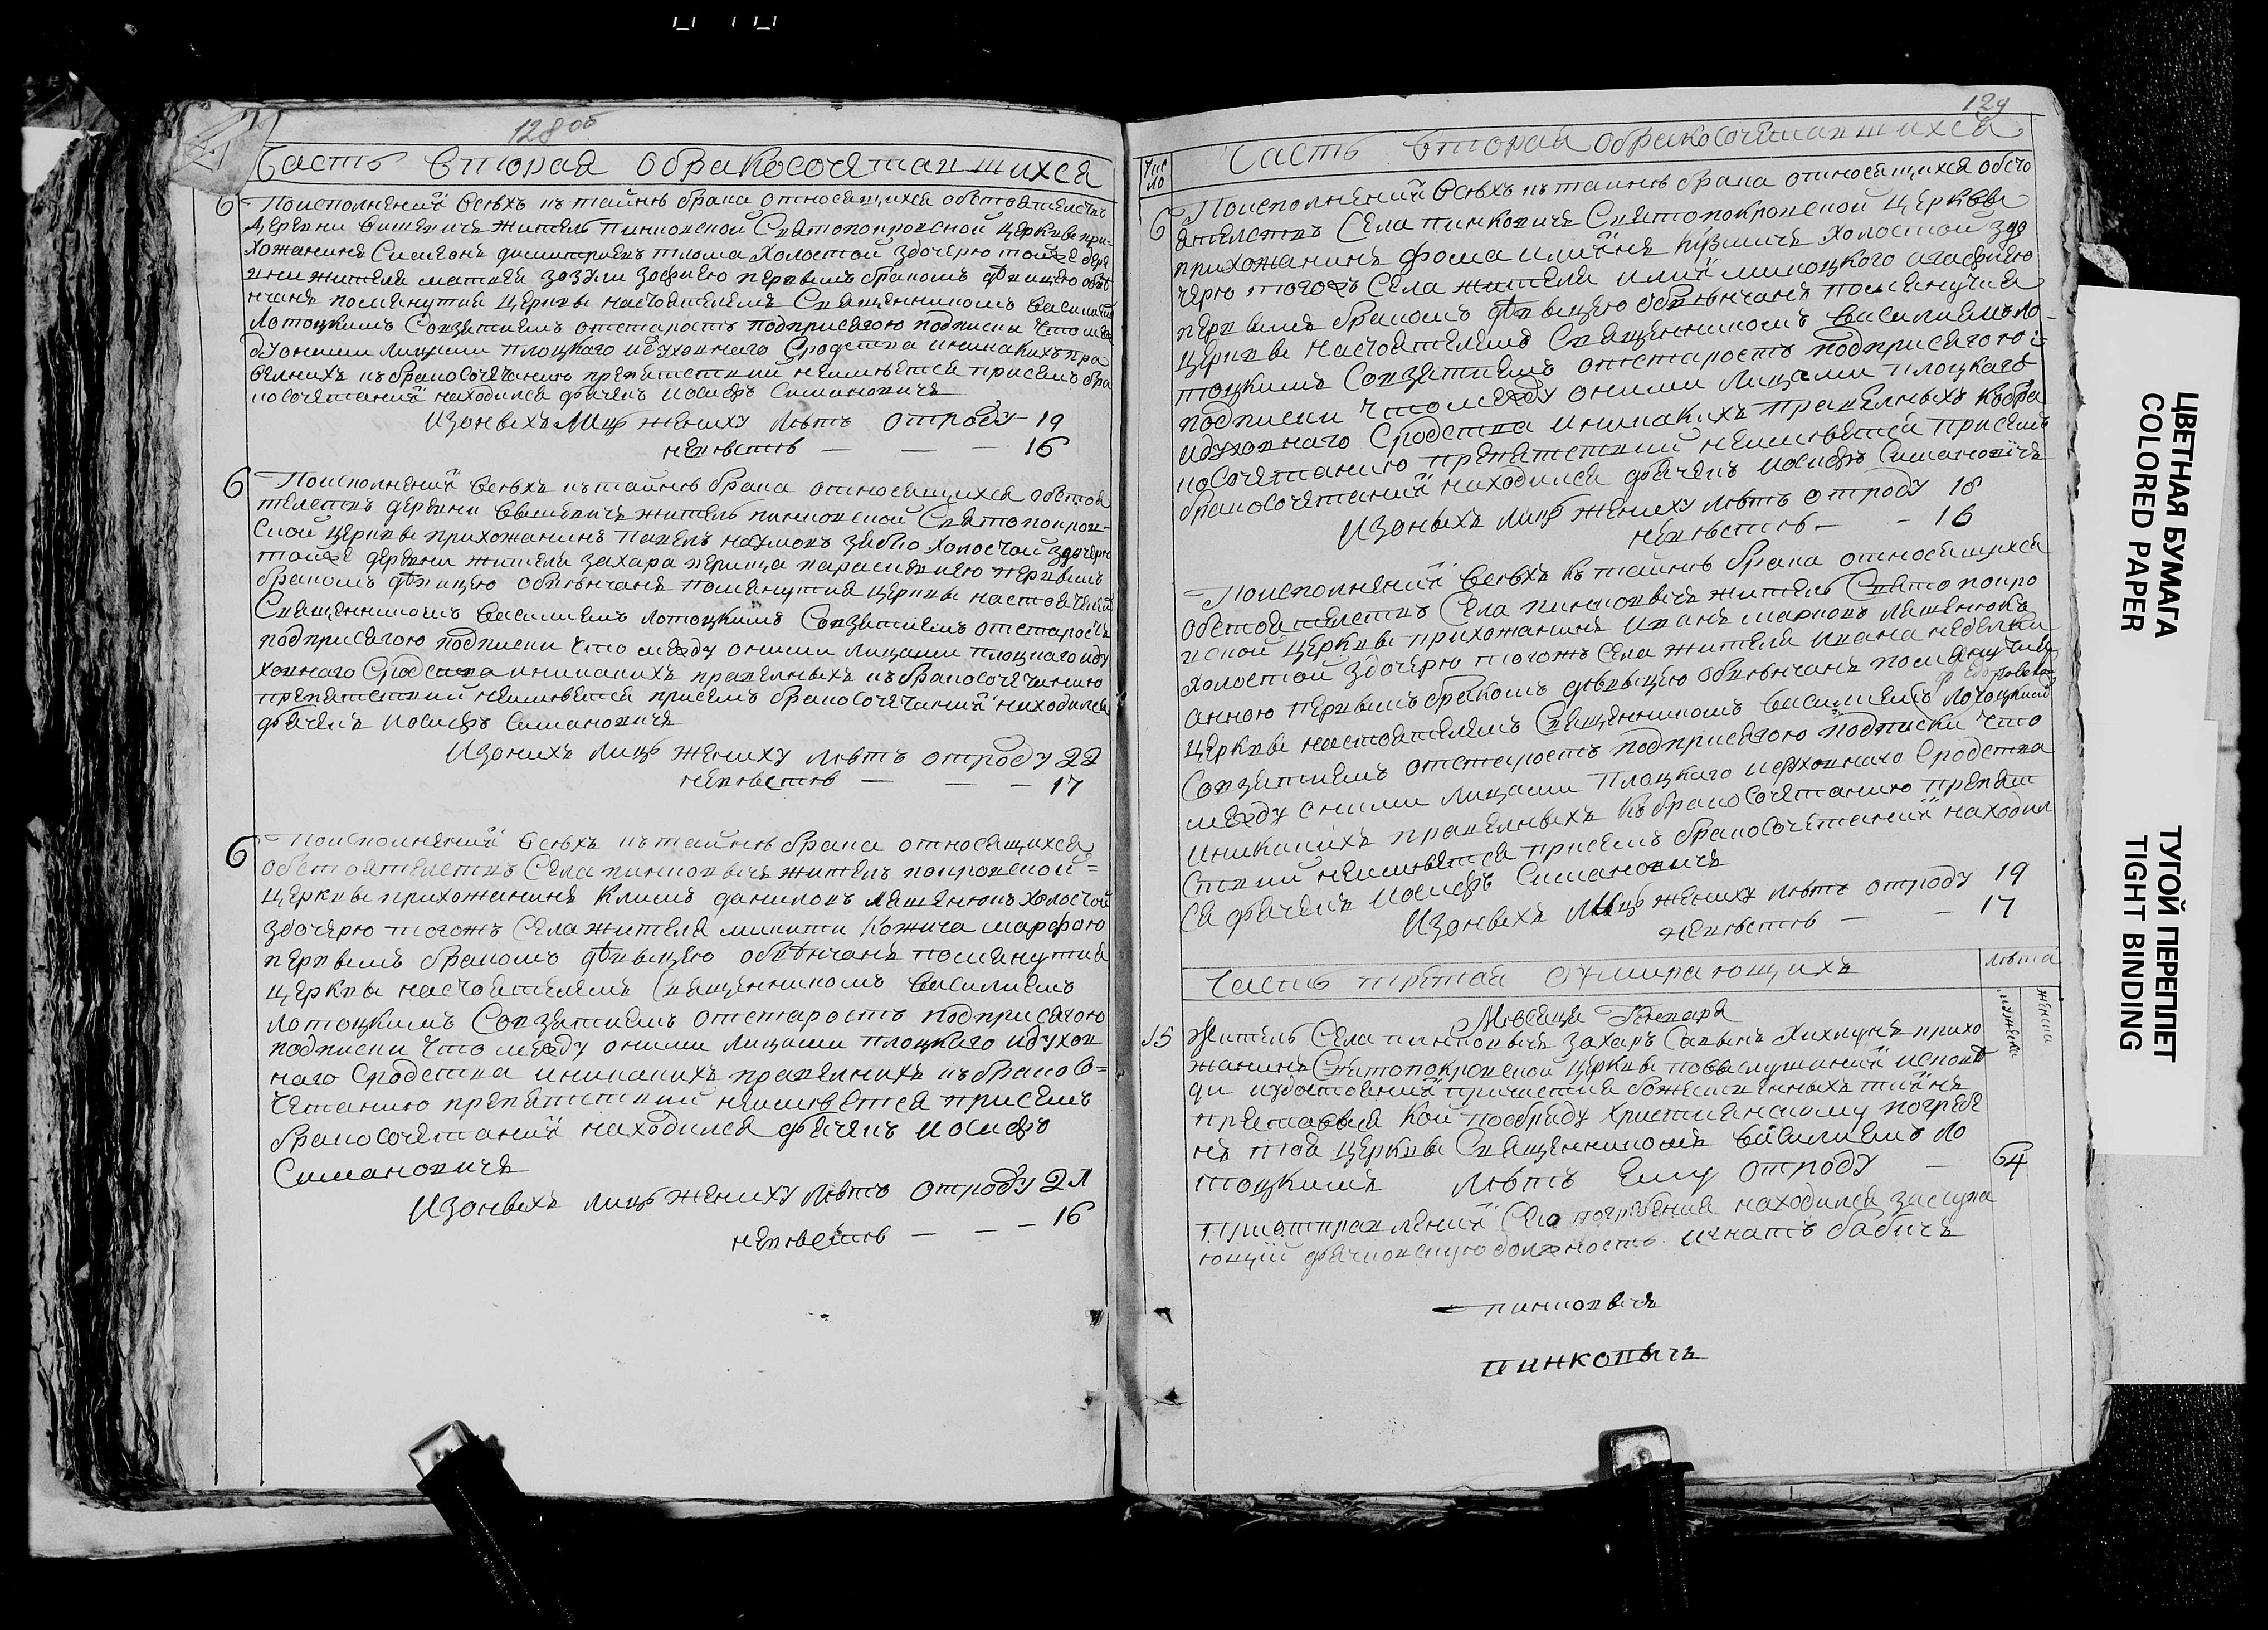 128 об
Часть вторая обракосочетавшихся
6 Поисполнении всехъ къ тайнѣ брака относящихся обстоятелствъ
деревни вишевичь житель пинковской Святопокровской церкви при-
хожанинъ Симеонъ димитриевъ холостой здочерю тойже дере
вни жителя матвея зозули зофиею первымъ бракомъ дѣвицею обвѣ
нчанъ помянутия церкви настоятелемъ Священникомъ василиемъ
Лотоцкимъ Совзятиемъ отстаростъ подприсягою подписки что меж
ду оними лицами плоцкаго идуховнаго Сродства иникакихъ пра
велнихъ къ бракосочетанию препятствий неимѣется присемъ бра
косочетании находился дячекъ иосифъ Симановичъ
Изонвехъ лицъ жениху лѣтъ отроду - 19
невѣстѣ — — — 16
6 Поисполнении всехъ къ тайнѣ брака относящихся обстоя
телствъ деревни вишевичь житель пинковской Святопокров-
ской церкви прихожанинъ павелъ наумовъ холостой здочерю
тойже деревни жителя захара первымъ
бракомъ дѣвицею обвѣнчанъ помянутия церкви настоятелемъ
Священникомъ василиемъ лотоцкимъ Совзятиемъ отстаростъ
подприсягою подписки что между оними лицами плоцкаго иду
ховнаго Сродства иникакихъ правелныхъ къ бракосочетанию
препятствий неимѣется присемъ бракосочетании находился
дячекъ иосифъ Симановичъ
Изонихъ лицъ жениху лѣтъ отроду 22
невѣстѣ — — — 17
6 Поисполнении всехъ къ тайнѣ брака относящихся
обстоятелствъ Села пинковичь житель покровской =
церкви прихожанинъ Климъ даниловъ лешенюкъ холостой
здочерю тогожъ Села жителя микити Кожича марфою
первымъ бракомъ дѣвицею обвѣнчанъ помянутия
церкви настоятелемъ Священникомъ василиемъ
лотоцкимъ Совзятиемъ отстаростъ подприсягою
подписки что между оними лицами плоцкаго идухов
наго Сродства иникакихъ правелнихъ къ бракосо=
четанию препятствий неимѣется присемъ
бракосочетании находился дячекъ иосифъ
Симановичъ
Изонвехъ лицъ жениху лѣтъ отроду 21
невѣстѣ — — — 16
129
Чис
ло
Часть вторая обракосочетавшихся
6 Поисполнении всехъ къ таинѣ брака относящихся обсто
ятелствъ Села пинковичь Святопокровской церкви
прихожанинъ фома холостой здо
черю тогожъ Села жителя агафиею
первымъ бракомъ дѣвицею обвѣнчанъ помянутия
церкви настоятелемъ Священникомъ василиемъ ло-
тоцкимъ Совзятиемъ отстаростъ подприсягою
подписки что между оними лицами плоцкаго
идуховнаго Сродства иникакихъ правелныхъ къбра
косочетанию препятствий неимѣется присемъ
бракосочетании находился дячекъ иосифъ Симановичъ
Изонвехъ лицъ жениху лѣтъ отроду 18
невѣстѣ — — 16
Поисполнении всехъ къ тайнѣ брака относящихся
обстоятелствъ Села пинковичь житель Святопокро
вской церкви прихожанинъ иванъ марковъ лешенюкъ
холостой здочерю тогожъ Села жителя ивана неделки
анною первымъ бракомъ дѣвицею обвѣнчанъ помянутия
церкви настоятелемъ Священникомъ василиемъ лотоцкимъ
Совзятиемъ отстаростъ подприсягою подписки что
между оними лицами плоцкаго идуховнаго Сродства
иникакихъ правелныхъ къ бракосочетанию препят
ствий неимѣется присемъ бракосочетании находил
ся дячекъ иосифъ Симановичъ
Изонвехъ лицъ жениху лѣтъ отроду 19
невѣстѣ — — 17
Часть третая оумирающихъ
лѣта
мужеск
женска
Мѣсяца Генваря
15 житель Села пинковичь захаръ Савинъ Хихлунъ прихо
жанинъ Святопокровской церкви повыслушании исповѣ
ди иудостоении причастия божественныхъ таинъ
преставися кой пообряду християнскому погребе
нъ тоя церкви Священникомъ василиемъ ло
тоцкимъ лѣтъ ему отроду — 64
Приотправлении сего погребения находился заступа
ющий дячковскую должность игнатъ бабичъ
— пинковичь
пинковичь
ЦВЕТНАЯ БУМАГА
COLORED PAPER
ТУГОЙ ПЕРЕПЛЕТ
TIGHT BINDING